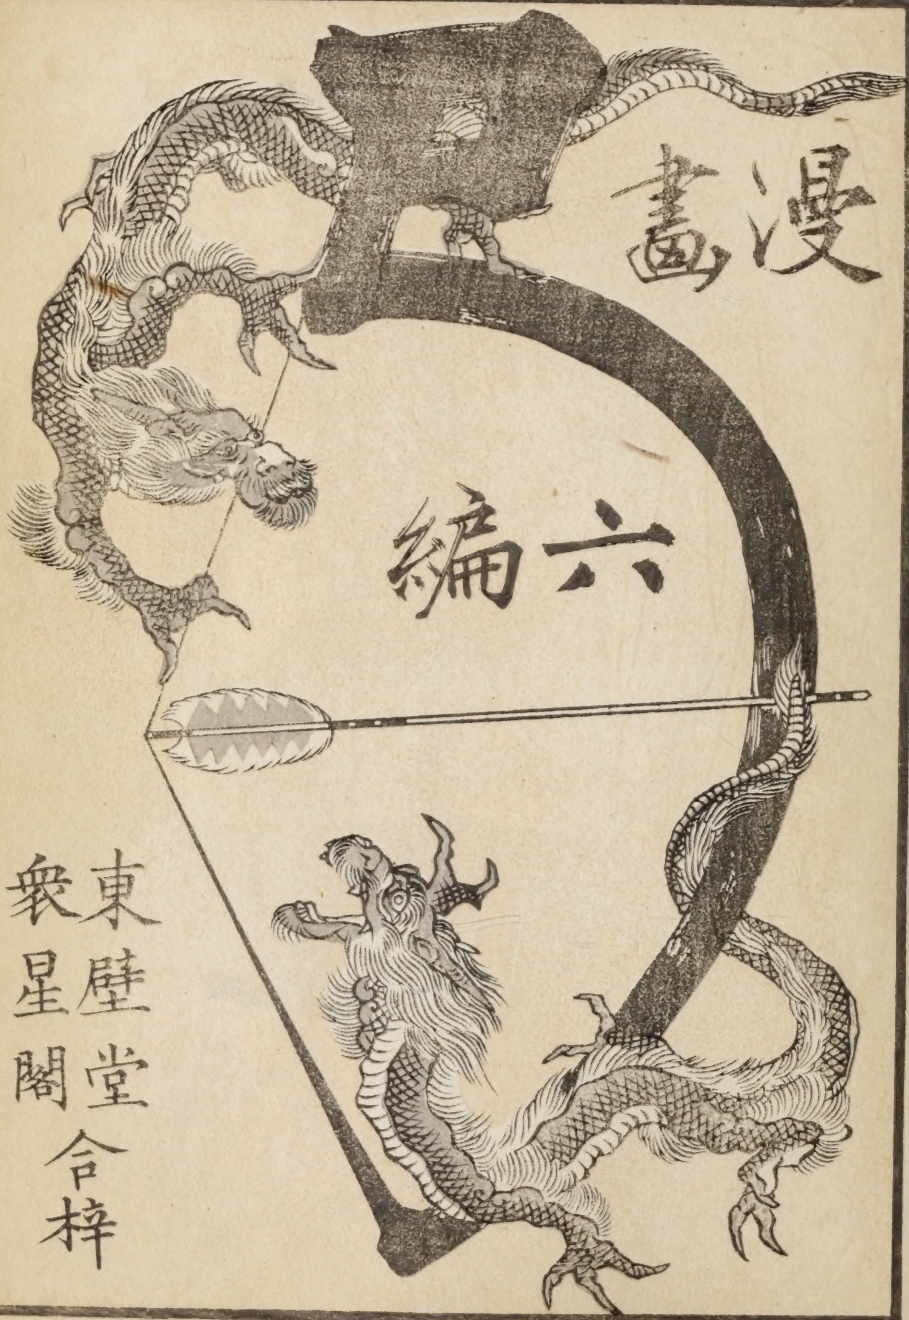 漫畫
六編
東壁堂
衆星閣
合梓